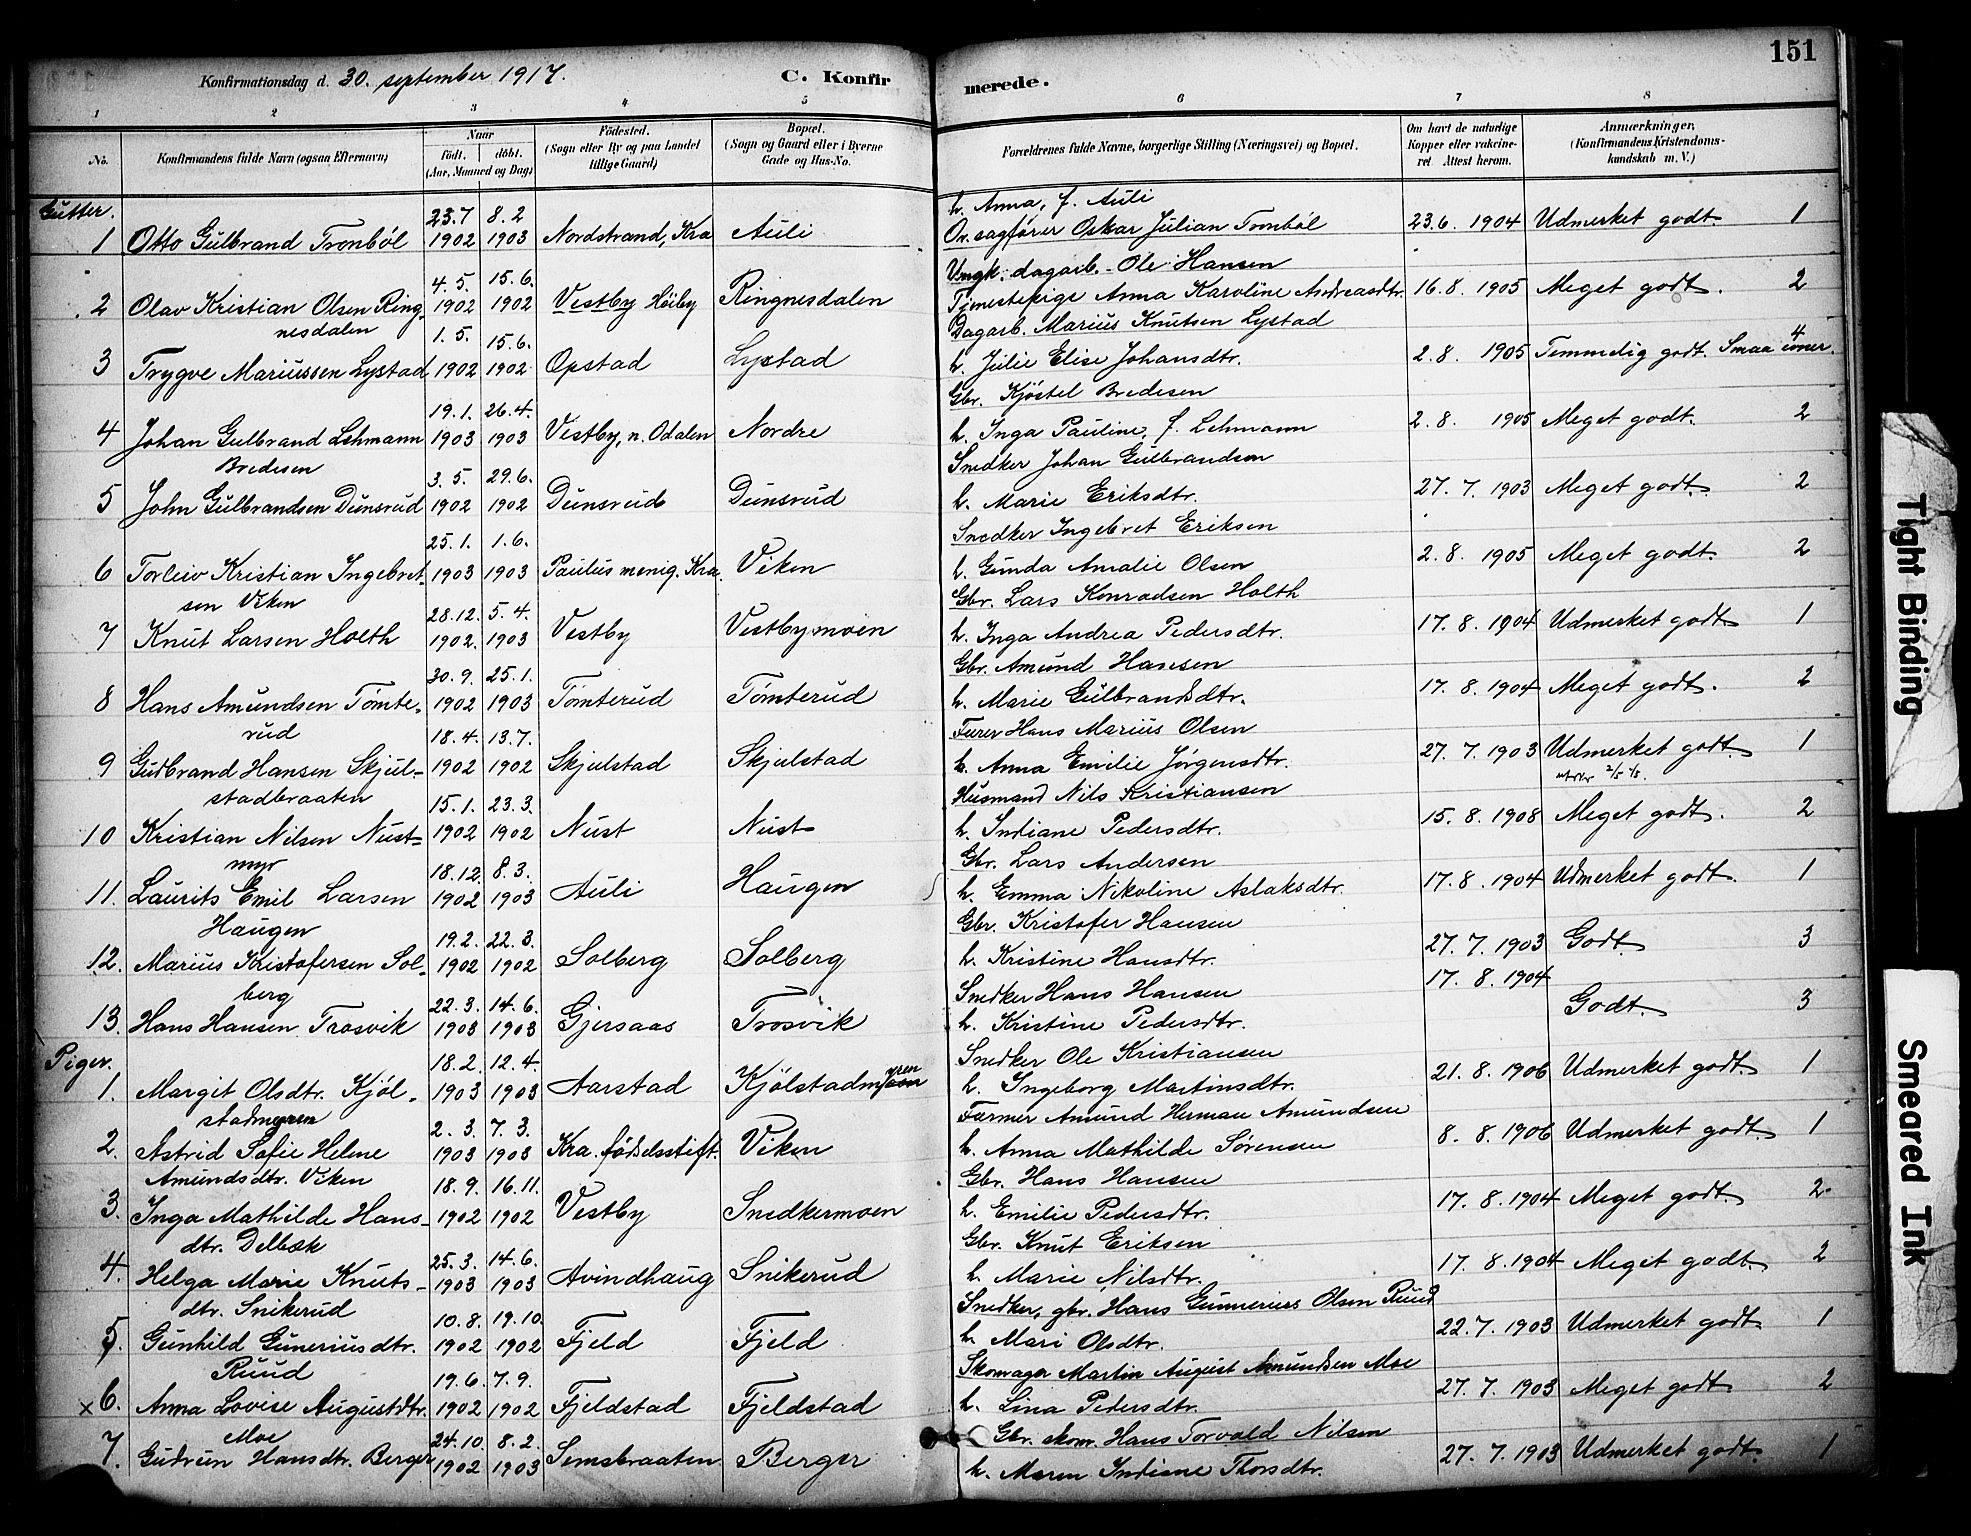 151
Konfirmationsdag d. 30. september 1917. C. Konfirmerede.
1 2 3 4 5 6 7 8
No. Konfirmandens fulde Navn (ogsaa Efternavn) Naar født. døbt. (Aar, Maaned og Dag) Fødested. (Sogn eller By og paa Landet tillige Gaard) Bopæl. (Sogn og Gaard eller i Byerne Gade og Hus-No.) Forældrenes fulde Navne, borgerlige Stilling (Næringsvei) og Bopæl. Om havt de naturlige Kopper eller vaccineret Attest herom. Anmærkninger. (Konfirmandens Kristendomskundskab m. V.)
Gutter. 23.7 8.2 h. Anna, f. Auli
1 Otto Gulbrand Tronbøl 1902 1903 Nordstrand, Kra Auli O.r.sagfører Oskar Julian Tronbøl 23.6. 1904 Udmerket godt. 1
4.5. 15.6. Ungk. dagarb. Ole Hansen
2 Olav Kristian Olsen Ring- 1902 1902 Vestby Höiby Ringnesdalen Tjenestepige Anna Karoline Andreasdtr. 16.8. 1905 Meget godt. 2
nesdalen 1.5. 15.6. Dagarb. Marius Knutsen Lystad
3 Trygve Mariussen Lystad 1902 1902 Opstad Lystad h. Julie Elise Johansdtr. 2.8. 1905 Temmelig godt. Smaa evner. 4
19.1. 26.4. Gbr. Kjöstel Bredesen
4 Johan Gulbrand Lehmann 1903 1903 Vestby, n. Odalen Nordre h. Inga Pauline, f. Lehmann 2.8. 1905 Meget godt. 2
Bredesen 3.5. 29.6. Snedker Johan Gulbrandsen
5 John Gulbrandsen Dunsrud 1902 1902 Dunsrud Dunsrud h. Marie Eriksdtr. 27.7. 1903 Meget godt. 2
25.1. 1.6. Snedker Ingebret Eriksen
6 Torleiv Kristian Ingebret- 1903 1903 Paulus menig. Kra. Viken h. Gunda Amalie Olsen 2.8. 1905 Meget godt. 2
sen Viken 28.12. 5.4. Gbr. Lars Konradsen Holth
7 Knut Larsen Holth 1902. 1903 Vestby Vestbymoen h. Inga Andrea Pedersdtr. 17.8. 1904 Udmerket godt. 1
30.9. 25.1. Gbr. Amund Hansen
8 Hans Amundsen Tömte- 1902 1903 Tömterud Tömterud h. Marie Gulbrandsdtr. 17.8. 1904 Meget godt. 2
rud 18.4. 13.7. Furer Hans Marius Olsen
9 Gudbrand Hansen Skjul- 1902 1902 Skjulstad Skjulstad h. Anna Emilie Jörgensdtr. 27.7. 1903 Udmerket godt. 1
stadbraaten 15.1. 23.3. Husmand Nils Kristiansen
10 Kristian Nilsen Nust- 1902 1902 Nust Nust h. Indiane Pedersdtr. 15.8. 1908 Meget godt. 2
myr 18.12. 8.3. Gbr. Lars Andersen
11. Laurits Emil Larsen 1902 1903 Auli Haugen h. Emma Nikoline Aslaksdtr. 17.8. 1904 Udmerket godt. 1
Haugen 19.2. 22.3. Gbr. Kristofer Hansen
12. Marius Kristofersen Sol- 1902 1902 Solberg Solberg h. Kristine Hansdtr. 27.7. 1903 Godt. 3
berg 22.3. 14.6. Snedker Hans Hansen 17.8. 1904
13. Hans Hansen Trosvik 1903 1903 Gjersaas Trosvik h. Kristine Pedersdtr. Godt. 3
Piger. 18.2. 12.4. Snedker Ole Kristiansen
1. Margit Olsdtr. Kjöl- 1903 1903 Aarstad Kjölstadmyren h. Ingeborg Martinsdtr. 21.8. 1906 Udmerket godt. 1
stadmyren 2.3. 7.3. Farmer Amund Herman Amundsen
2. Astrid Sofie Helene 1903 1903 Kra. födselsstift. Viken h. Anna Mathilde Sørensen 8.8. 1906 Udmerket godt. 1
Amundsdtr. Viken 18.9. 16.11. Gbr. Hans Hansen
3. Inga Mathilde Hans- 1902 1902 Vestby Snedkermoen h. Emilie Pedersdtr. 17.8. 1904 Meget godt 2
dtr. Delbæk 25.3. 14.6. Gbr. Knut Eriksen
4. Helga Marie Knuts- 1903 1903 Avindhaug Snikerud h. Marie Nilsdtr. 17.8. 1904 Meget godt. 2
dtr. Snikerud 10.8. 19.10. Snedker, gbr. Hans Gunnerius Olsen Ruud
5. Gunhild Guneriusdtr. 1902 1902 Fjeld Fjeld h. Mari Olsdtr. 22.7. 1903 Udmerket godt. 1
Ruud 19.6. 7.9. Skomager Martin August Amundsen Moe
x 6. Anna Lovise Augustdtr. 1902 1902 Fjeldstad Fjeldstad h. Lina Pedersdtr. 27.7. 1903 Meget godt 2
Moe 24.10. 8.2. Gbr. skom. Hans Torvald Nilsen
7. Gudrun Hansdtr. Berger 1902 1903 Semsbraaten Berger h. Maren Indiane Thorsdtr. 27.7. 1903 Udmerket godt. 1
Tight Binding
Smeared Ink